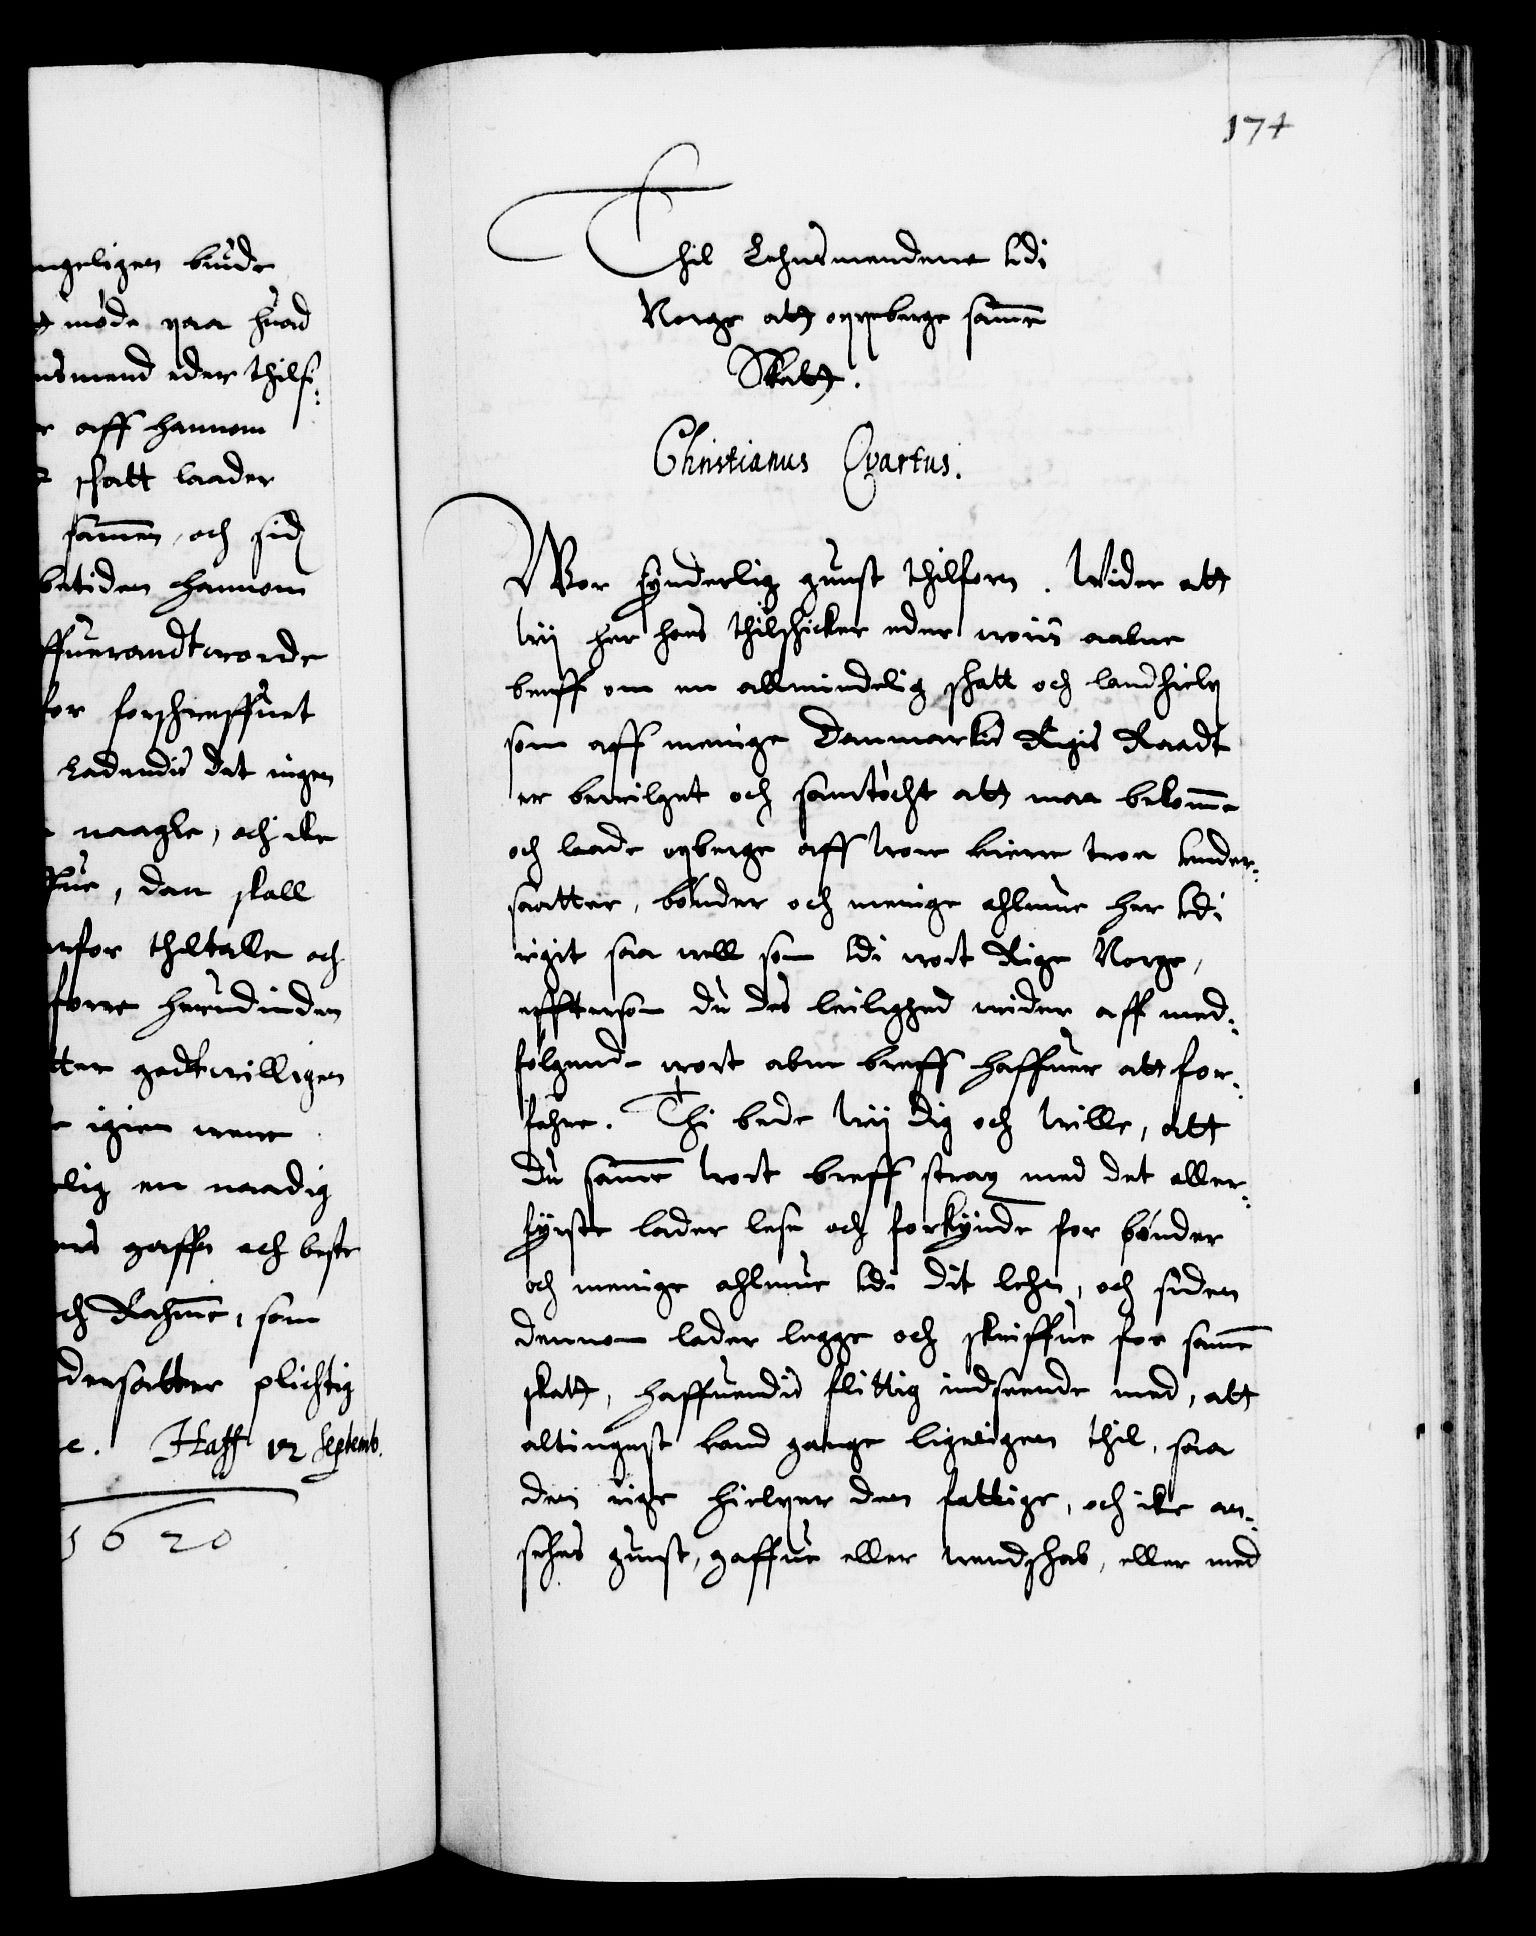 ngeligen bude
møde paa huad
nsmend eder thilsi:
aff hannom
schatt laader
samen, och sid
betiden hannom
ffuerandtworde
for forschreffuet
Ladendis det ingen
naagle, och icke
ffue, dan skall
for thiltalle och
forre herudinden
tter godtwilligen
igien were
elig en naadig
ers gaffn och beste
ch Rahme, som
dersatter plichtig
e. Haff 12 Septemb.
1620
174
Thil Lehnsmendene udi
Norge att oppeberge same
Skatt.
Christianus Qvartus.
Wor synderlig gunst thilforn. Wider att
wij her hos thilschicker eder woris aabne
breff om en allmindelig schatt och landhielp
som aff menige Danmarkis Rigis Raadt
er beuilget och samtøcht att maa bekomme
och laade opberge aff wore kierre troe under:
saatter, bønder och menige ahlmue her udi
rigit saa well som udi wort Rige Norge,
effterson du des leilighed wider aff med:
følgende wort aben breff haffuer att for:
fahre. Thi bede wij dig och wille, att
du same wort breff strax med det aller:
fyrste lader lese och forkynde for bønder
och menige ahlmue udi dit lehn, och siden
dennom lader legge och skriffue for same
skatt, haffuendis flittig indseende med, att
altingest kand gange ligeligen thil, saa
den rige hielper den fattige, och icke an:
sehes gunst, gaffue eller wendschab, eller med